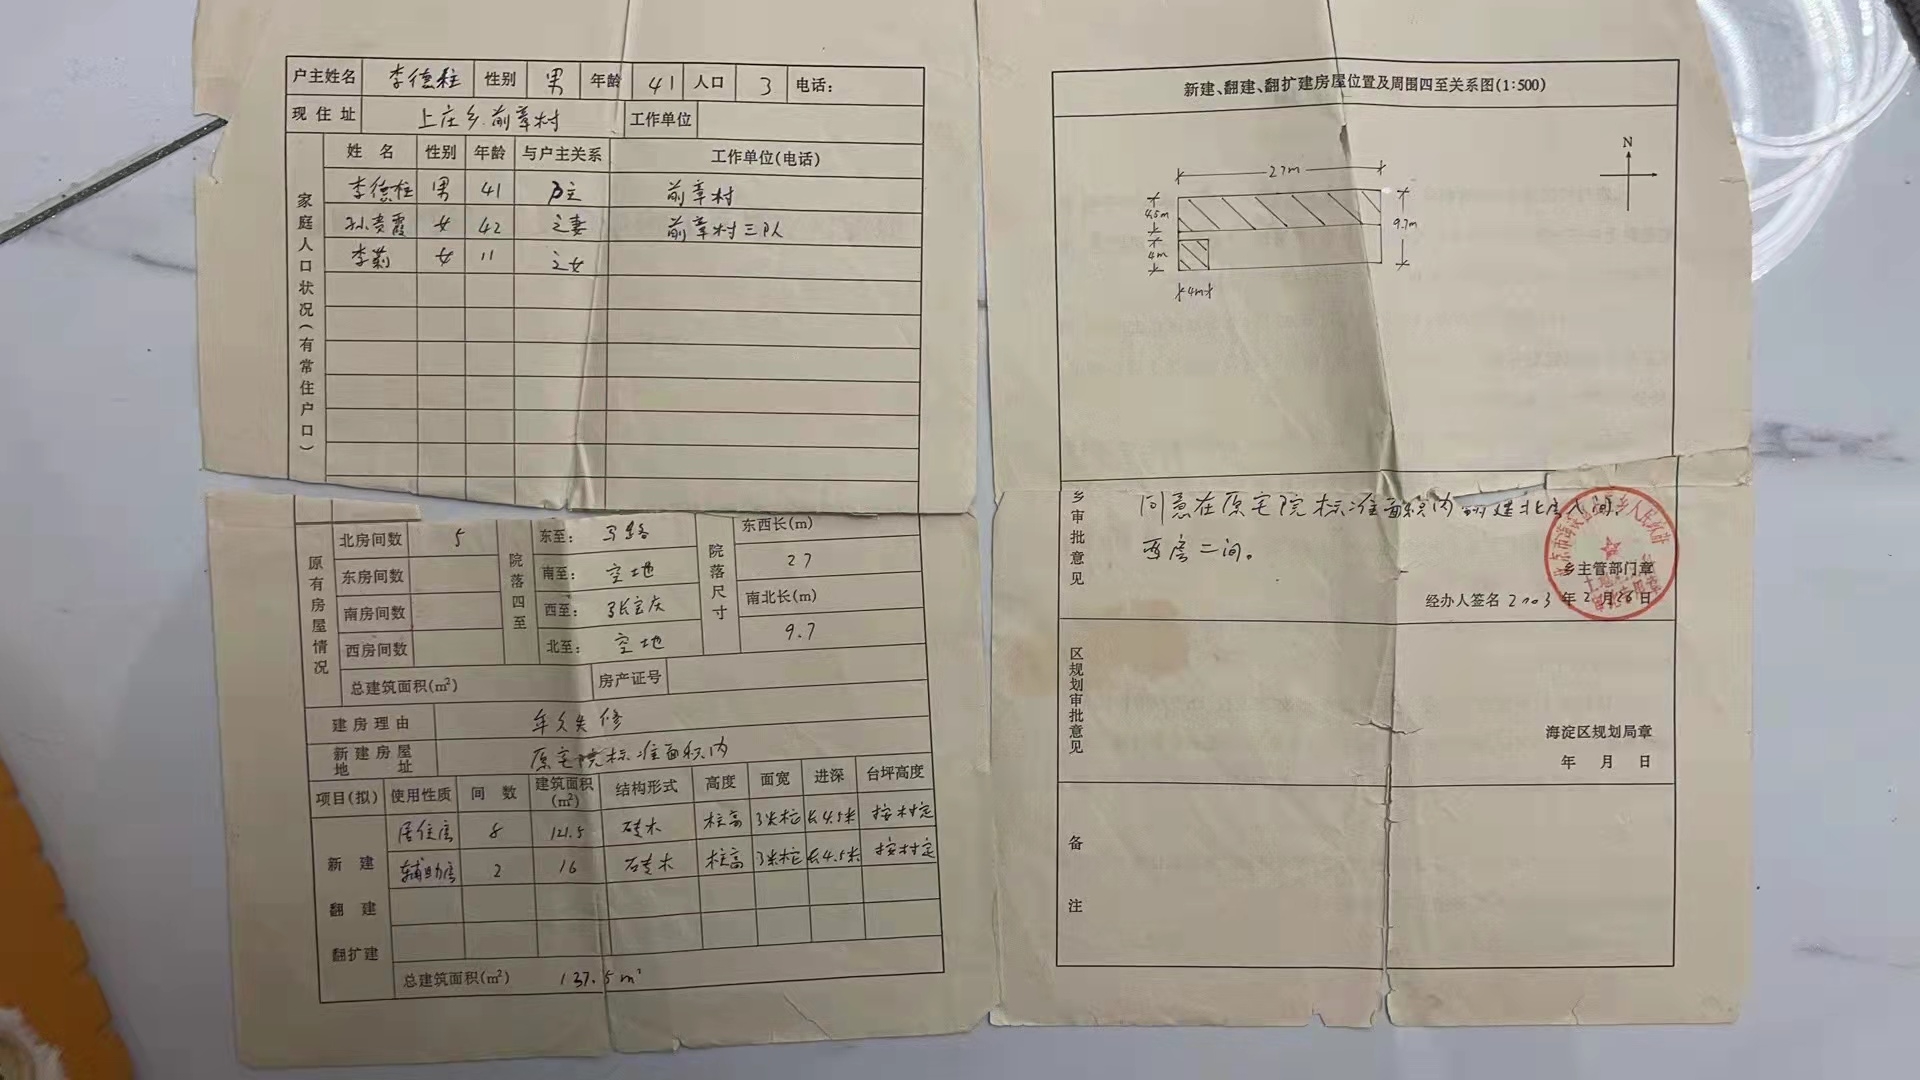 户主姓名 李德柱 性别 男 年龄 41 人口 3 电话：
现住址 上庄乡.前章村 工作单位
家庭人口状况（有常住户口）
姓名 性别 年龄 与户主关系 工作单位（电话）
李德柱 男 41 户主 前章村
孙贵霞 女 42 之妻 前章村三队
李莉 女 11 之女
原有房屋情况
北房间数 5
东房间数
南房间数
西房间数
院落四至
东至： 马路
南至： 空地
西至： 张宝庆
北至： 空地
院落尺寸
东西长(m)
27
南北长(m)
9.7
总建筑面积(m²) 房产证号
建房理由 年久失修
新建房屋地址 原宅院标准面积内
项目(拟) 使用性质 间数 建筑面积(m²) 结构形式 高度 面宽 进深 台坪高度
新建
居住房 8 121.5 砖木 柱高 3米柁 长4.5米 按村定
辅助房 2 16 砖木 柱高 3米柁 长4.5米 按村定
翻建
翻扩建
总建筑面积(m²) 137.5m²
新建、翻建、翻扩建房屋位置及周围四至关系图(1:500)
N
27m
4.5m
9.7m
4m
4m
乡审批意见
同意在原宅院标准面积内翻建北房八间.
西房二间。
乡主管部门章
经办人签名 2003年2月26日
区规划审批意见
海淀区规划局章
年 月 日
备注